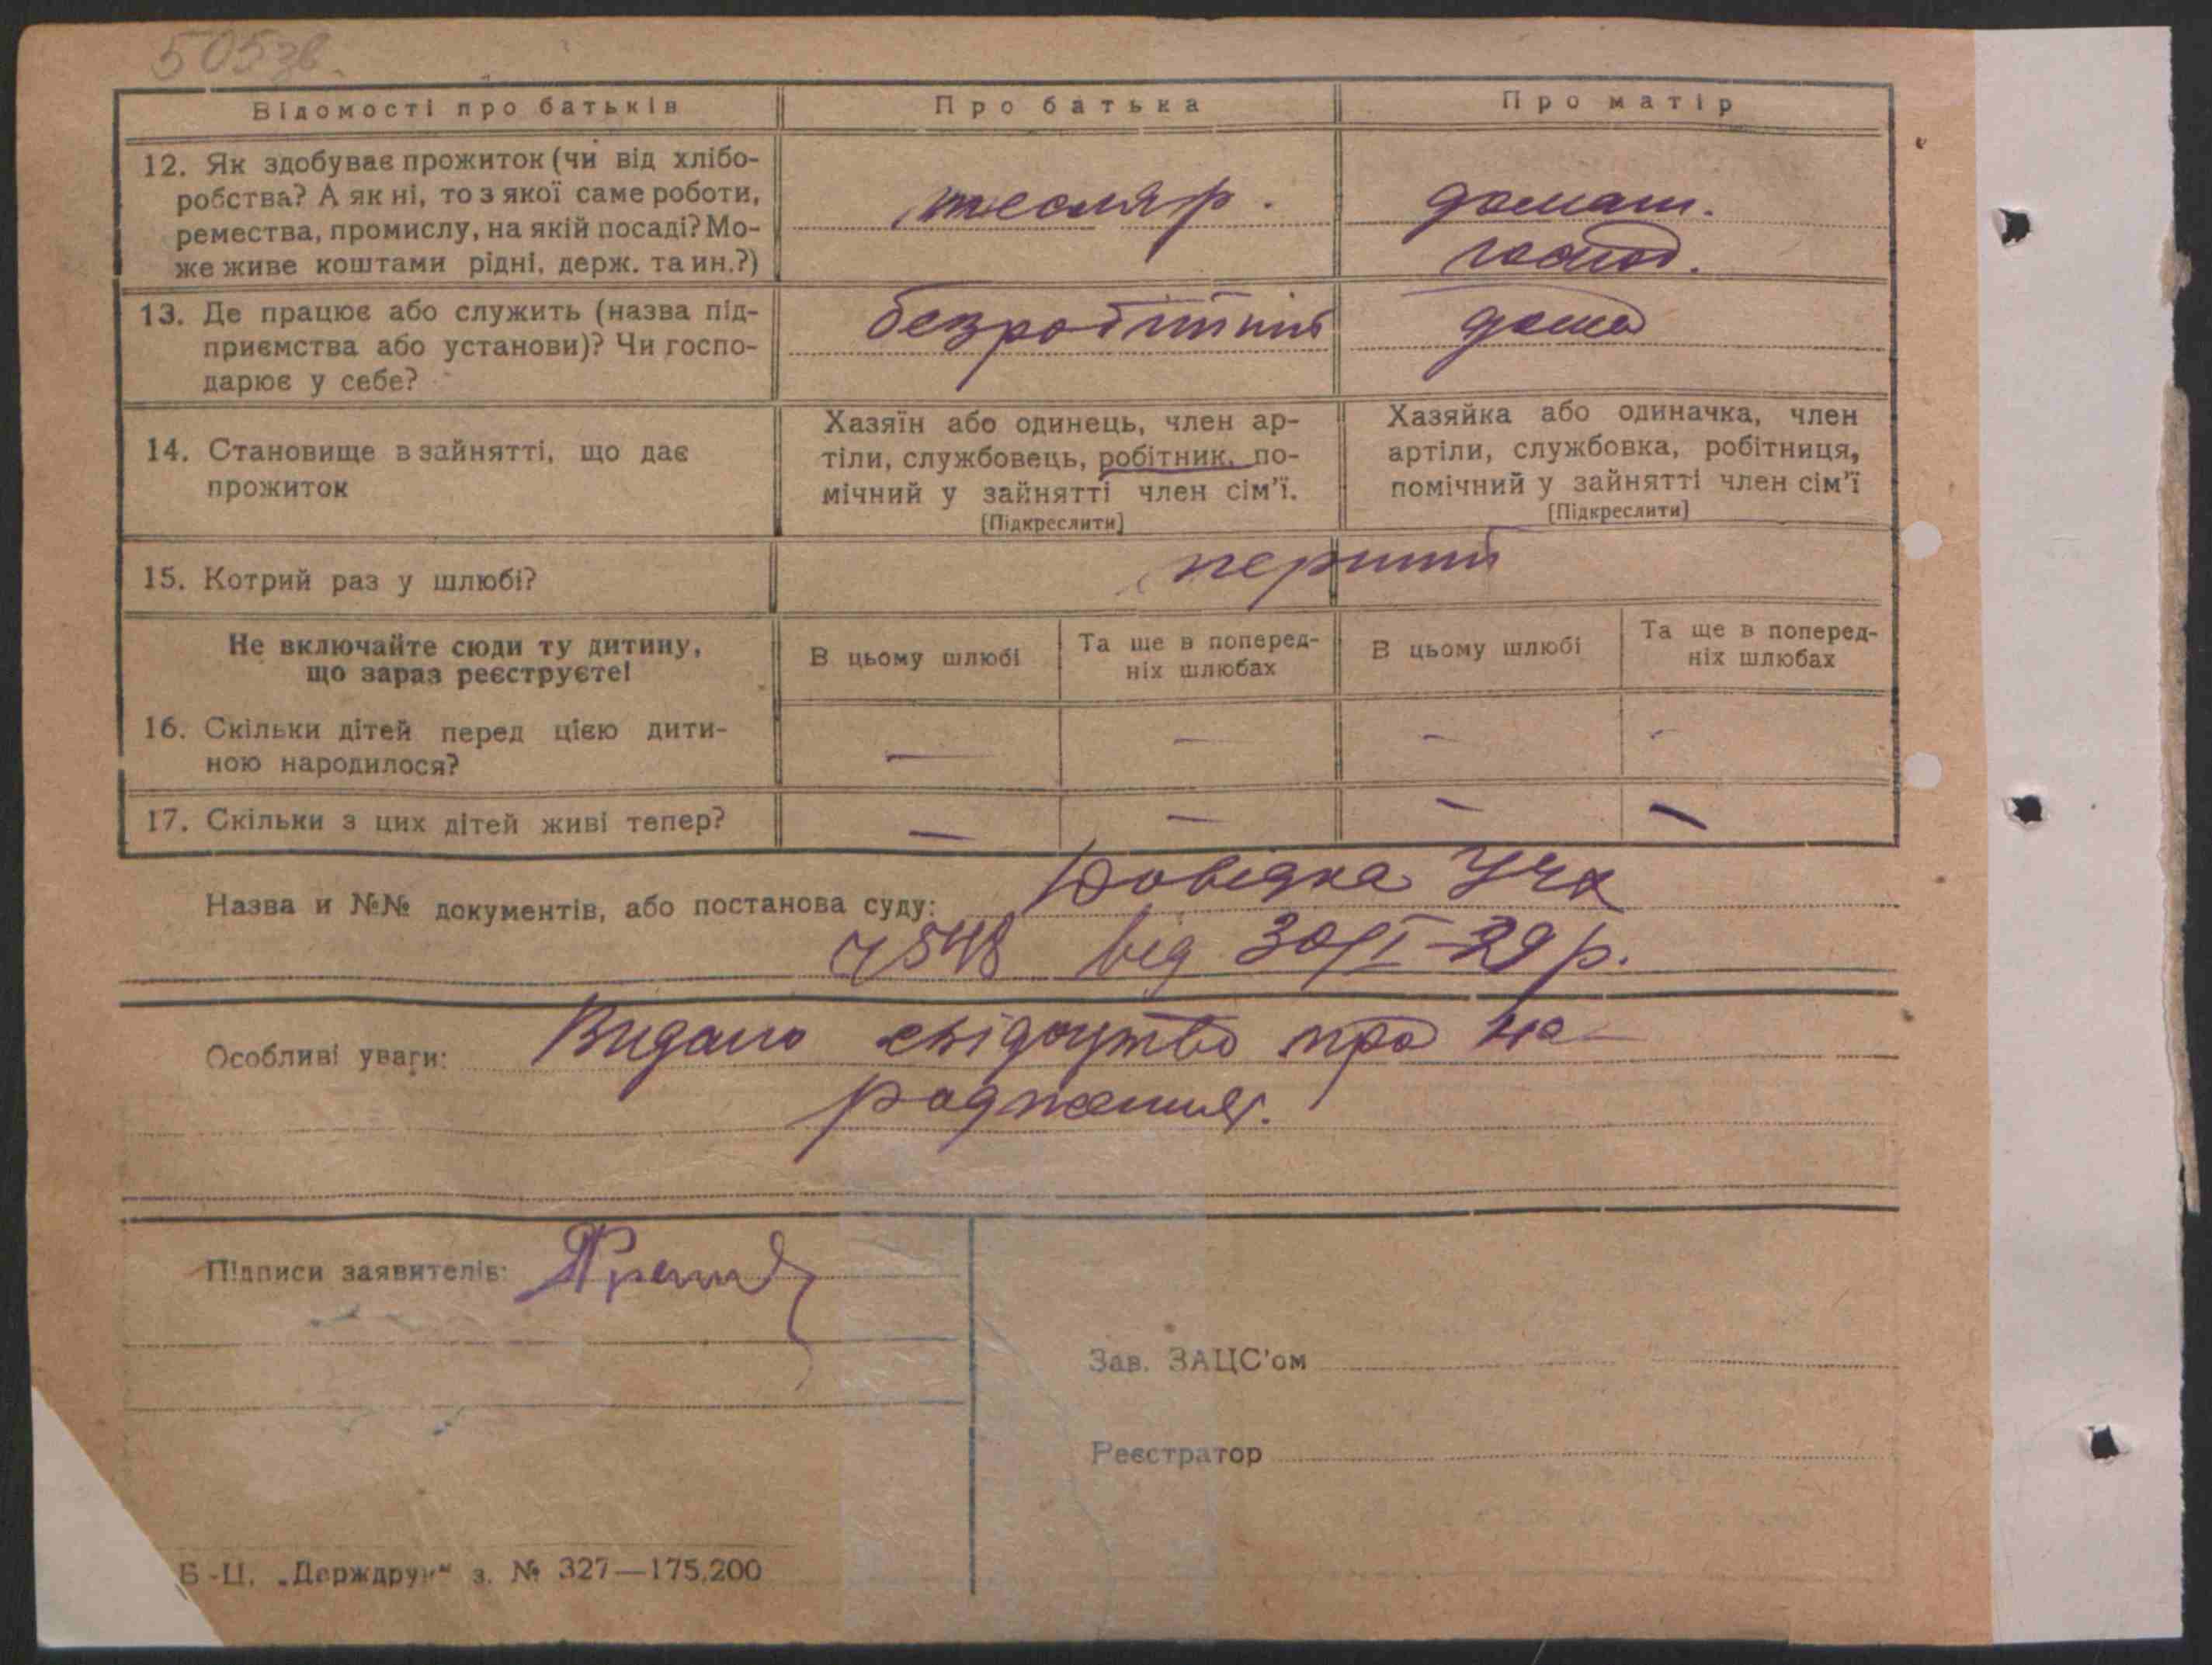 505зв.
Відомості про батьків
Про батька
Про матір
12. Як здобуває прожиток (чи від хлібо-
робства? А як ні, то з якої саме роботи,
ремества, промислу, на якій посаді? Мо-
же живе коштами рідні, держ. та ин.?)
тесляр.
домаш.
господ.
13. Де працює або служить (назва під-
приємства або установи)? Чи госпо-
дарює у себе?
безробітний
дома
14. Становище в зайнятті, що дає
прожиток
Хазяїн або одинець, член ар-
тіли, службовець, робітник, по-
мічний у зайнятті член сім'ї.
[Підкреслити]
Хазяйка або одиначка, член
артіли, службовка, робітниця,
помічний у зайнятті член сім'ї
[Підкреслити]
15. Котрий раз у шлюбі?
перший
Не включайте сюди ту дитину,
що зараз реєструєте!
В цьому шлюбі
Та ще в поперед-
ніх шлюбах
В цьому шлюбі
Та ще в поперед-
ніх шлюбах
16. Скільки дітей перед цією дити-
ною народилося?
— — — —
17. Скільки з цих дітей живі тепер?
— — — —
Назва и №№ документів, або постанова суду: Довідка
від 30/I-29 р.
Особливі уваги: Видано свідоцтво про на-
родження.
Підписи заявителів:
Зав. ЗАЦС'ом
Реєстратор
Б-Ц. „Держдрук“ з. № 327—175,200